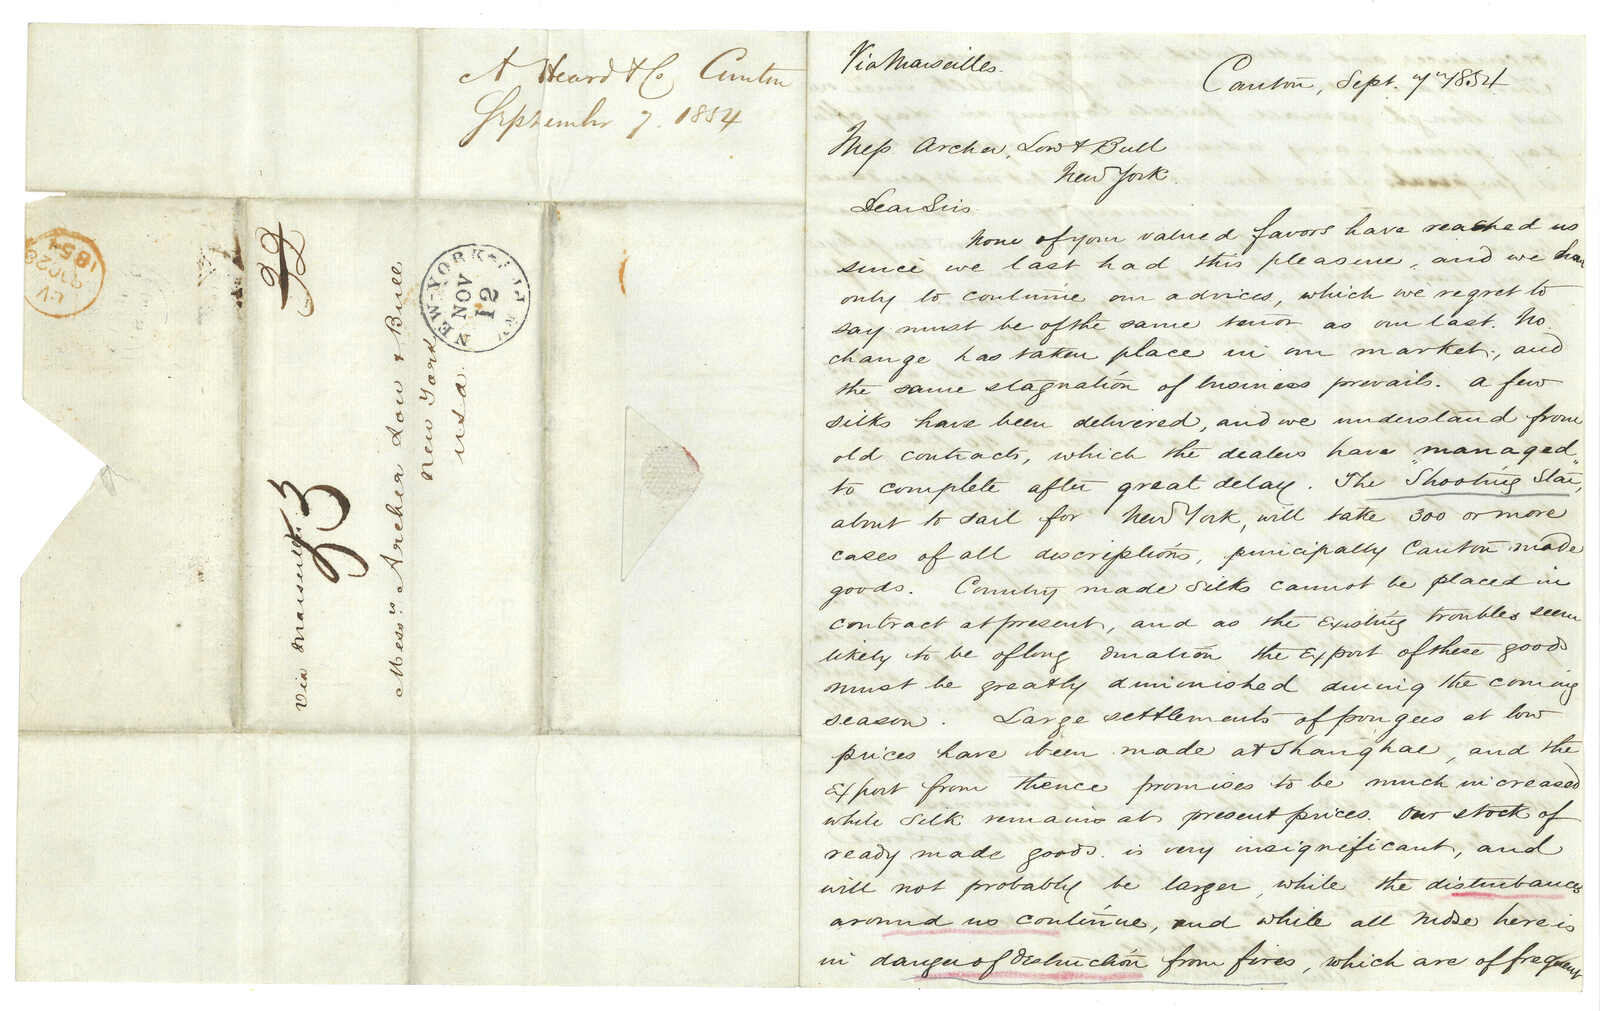 A Heard & Co Canton
September 7. 1854
NEW-YORK
NOV
12
Mess.rs Archer Low & Bull
New York
U.S.A.
Via Marseilles
33
1854
Via Marseilles.
Canton, Sept. 7th 1854
Mess. Archer, Low & Bull
New York.
Dear Sirs
None of your valued favors have reached us
since we last had this pleasure, and we have
only to continue our advices, which we regret to
say must be of the same tenor as our last. No
change has taken place in our market, and
the same stagnation of business prevails. A few
silks have been delivered, and we understand from
old contracts, which the dealers have managed
to complete after great delay. The "Shooting Star",
about to sail for New York, will take 300 or more
cases of all descriptions, principally Canton made
goods. Country made silks cannot be placed in
contract at present, and as the existing troubles seem
likely to be of long duration the export of these goods
must be greatly diminished during the coming
season. Large settlements of pongees at low
prices have been made at Shanghae, and the
export from thence promises to be much increased
while silk remains at present prices. Our stock of
ready made goods is very insignificant, and
will not probably be larger, while the disturbances
around us continue, and while all those here is
in danger of destruction from fires, which are of frequent